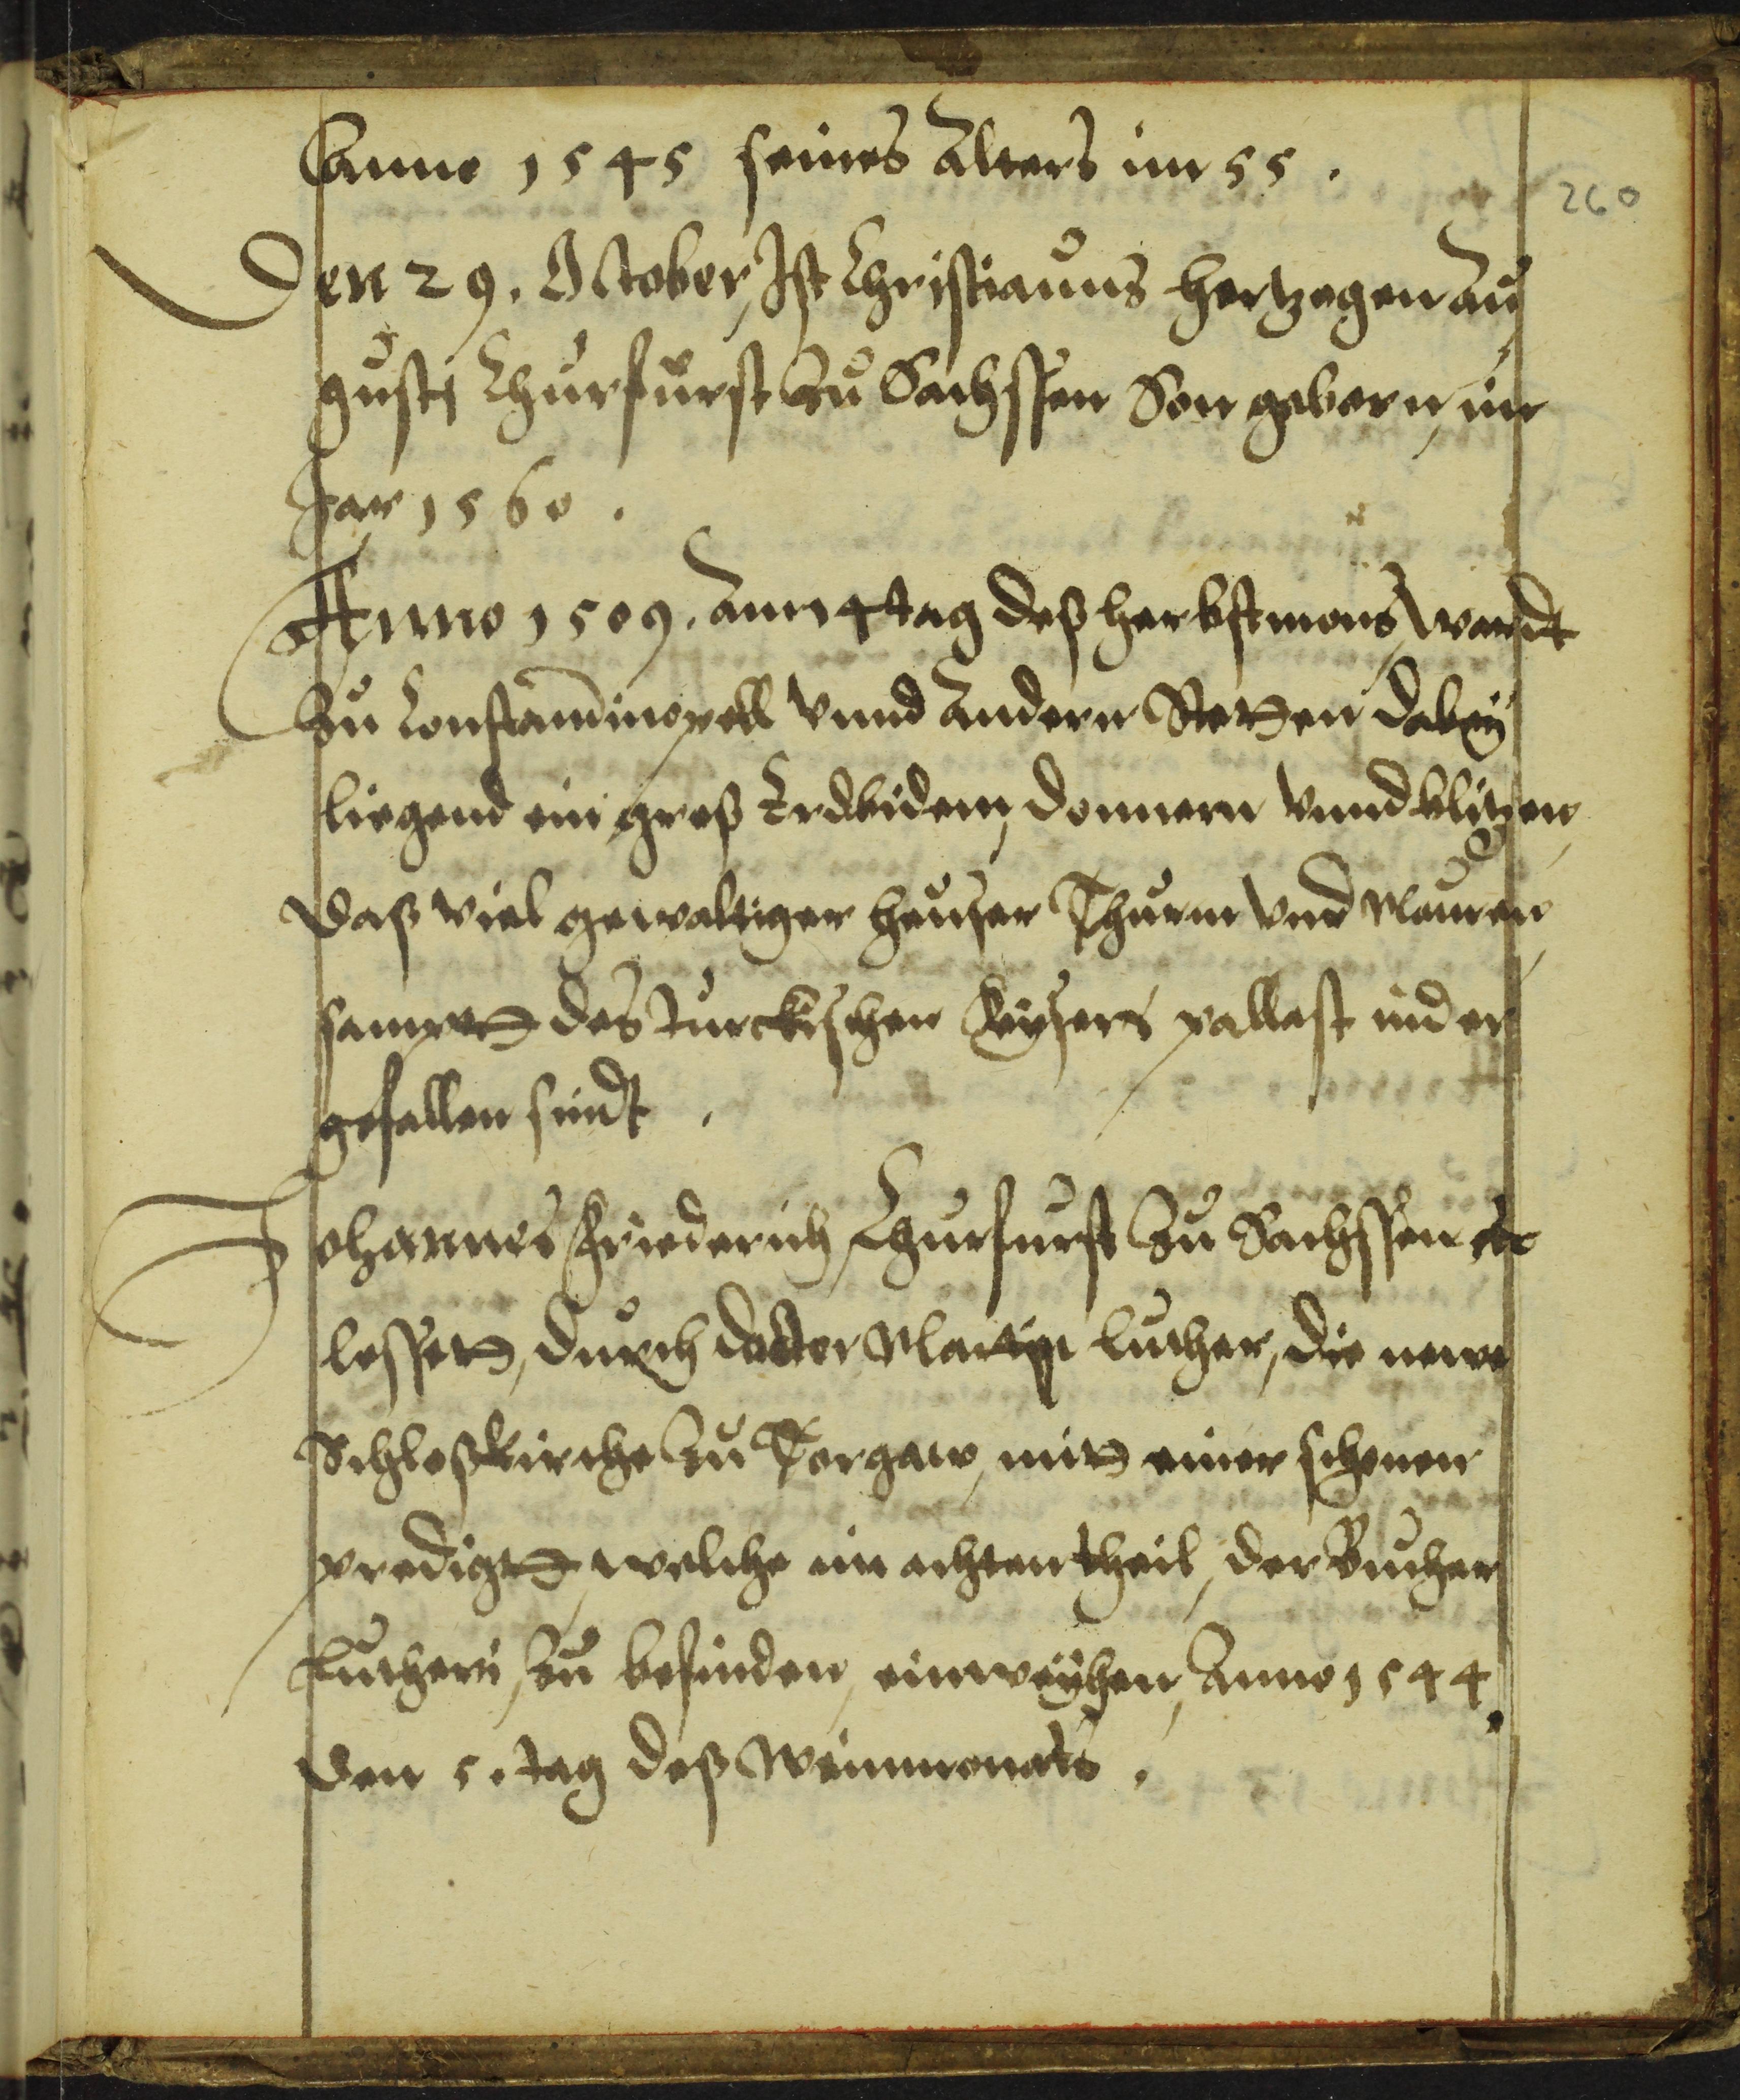 Anno 1545 seines Alters im 55.
260
Den 29. October, Ist Christianus hertzogen Au
gusti Churfurst Zu Sachssen Son geborn, im
Jar 1560.
Anno 1509. Am 14 tag deß herbstmons, wardt
Zu Constantinopell vnnd Andern Stetten dabey
liegend ein groß Erdbidem, donnern vnnd blitzen,
Daß viel gewaltiger heuser Thurm vnd Mauren,
sampt des Turckischen Keysers pallast nider
gefallen sindt.
Johannes Friederich, Churfurst Zu Sachssen etc
lesset, durch doctor Martin Luther, die newe
Schloßkirche Zu Torgaw, mit einer schonen
predigt, welche im achten theil, der Bucher
Lutheri, Zu befinden, einweyhen, Anno 1544.
Den 5. tag deß Weinmonats.